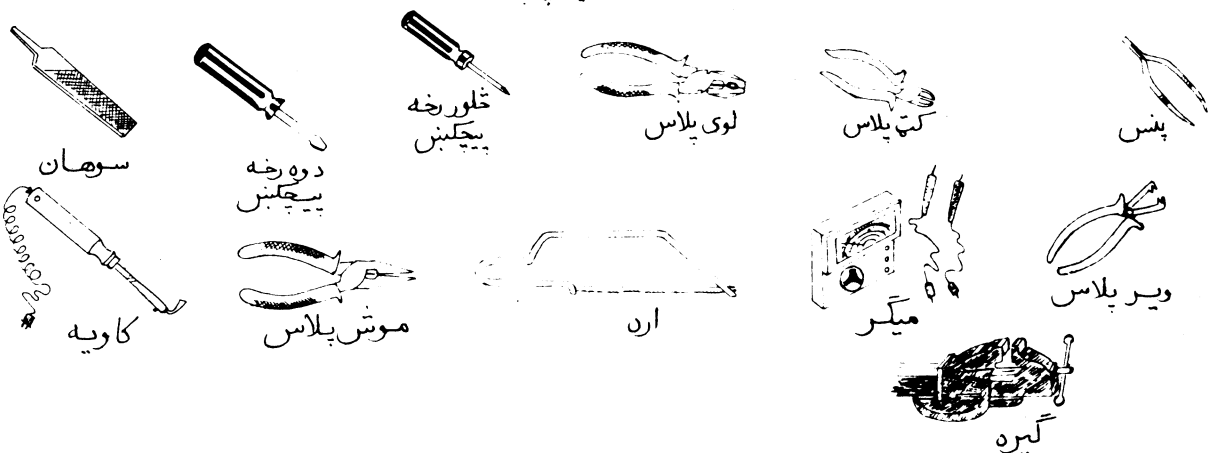 پنس
کټ پلاس
لوی پلاس
څلور رخه
پیچکښ
دوه رخه
پیچکښ
سوهان
ویر پلاس
میگر
اره
موش پلاس
کاویه
گیره